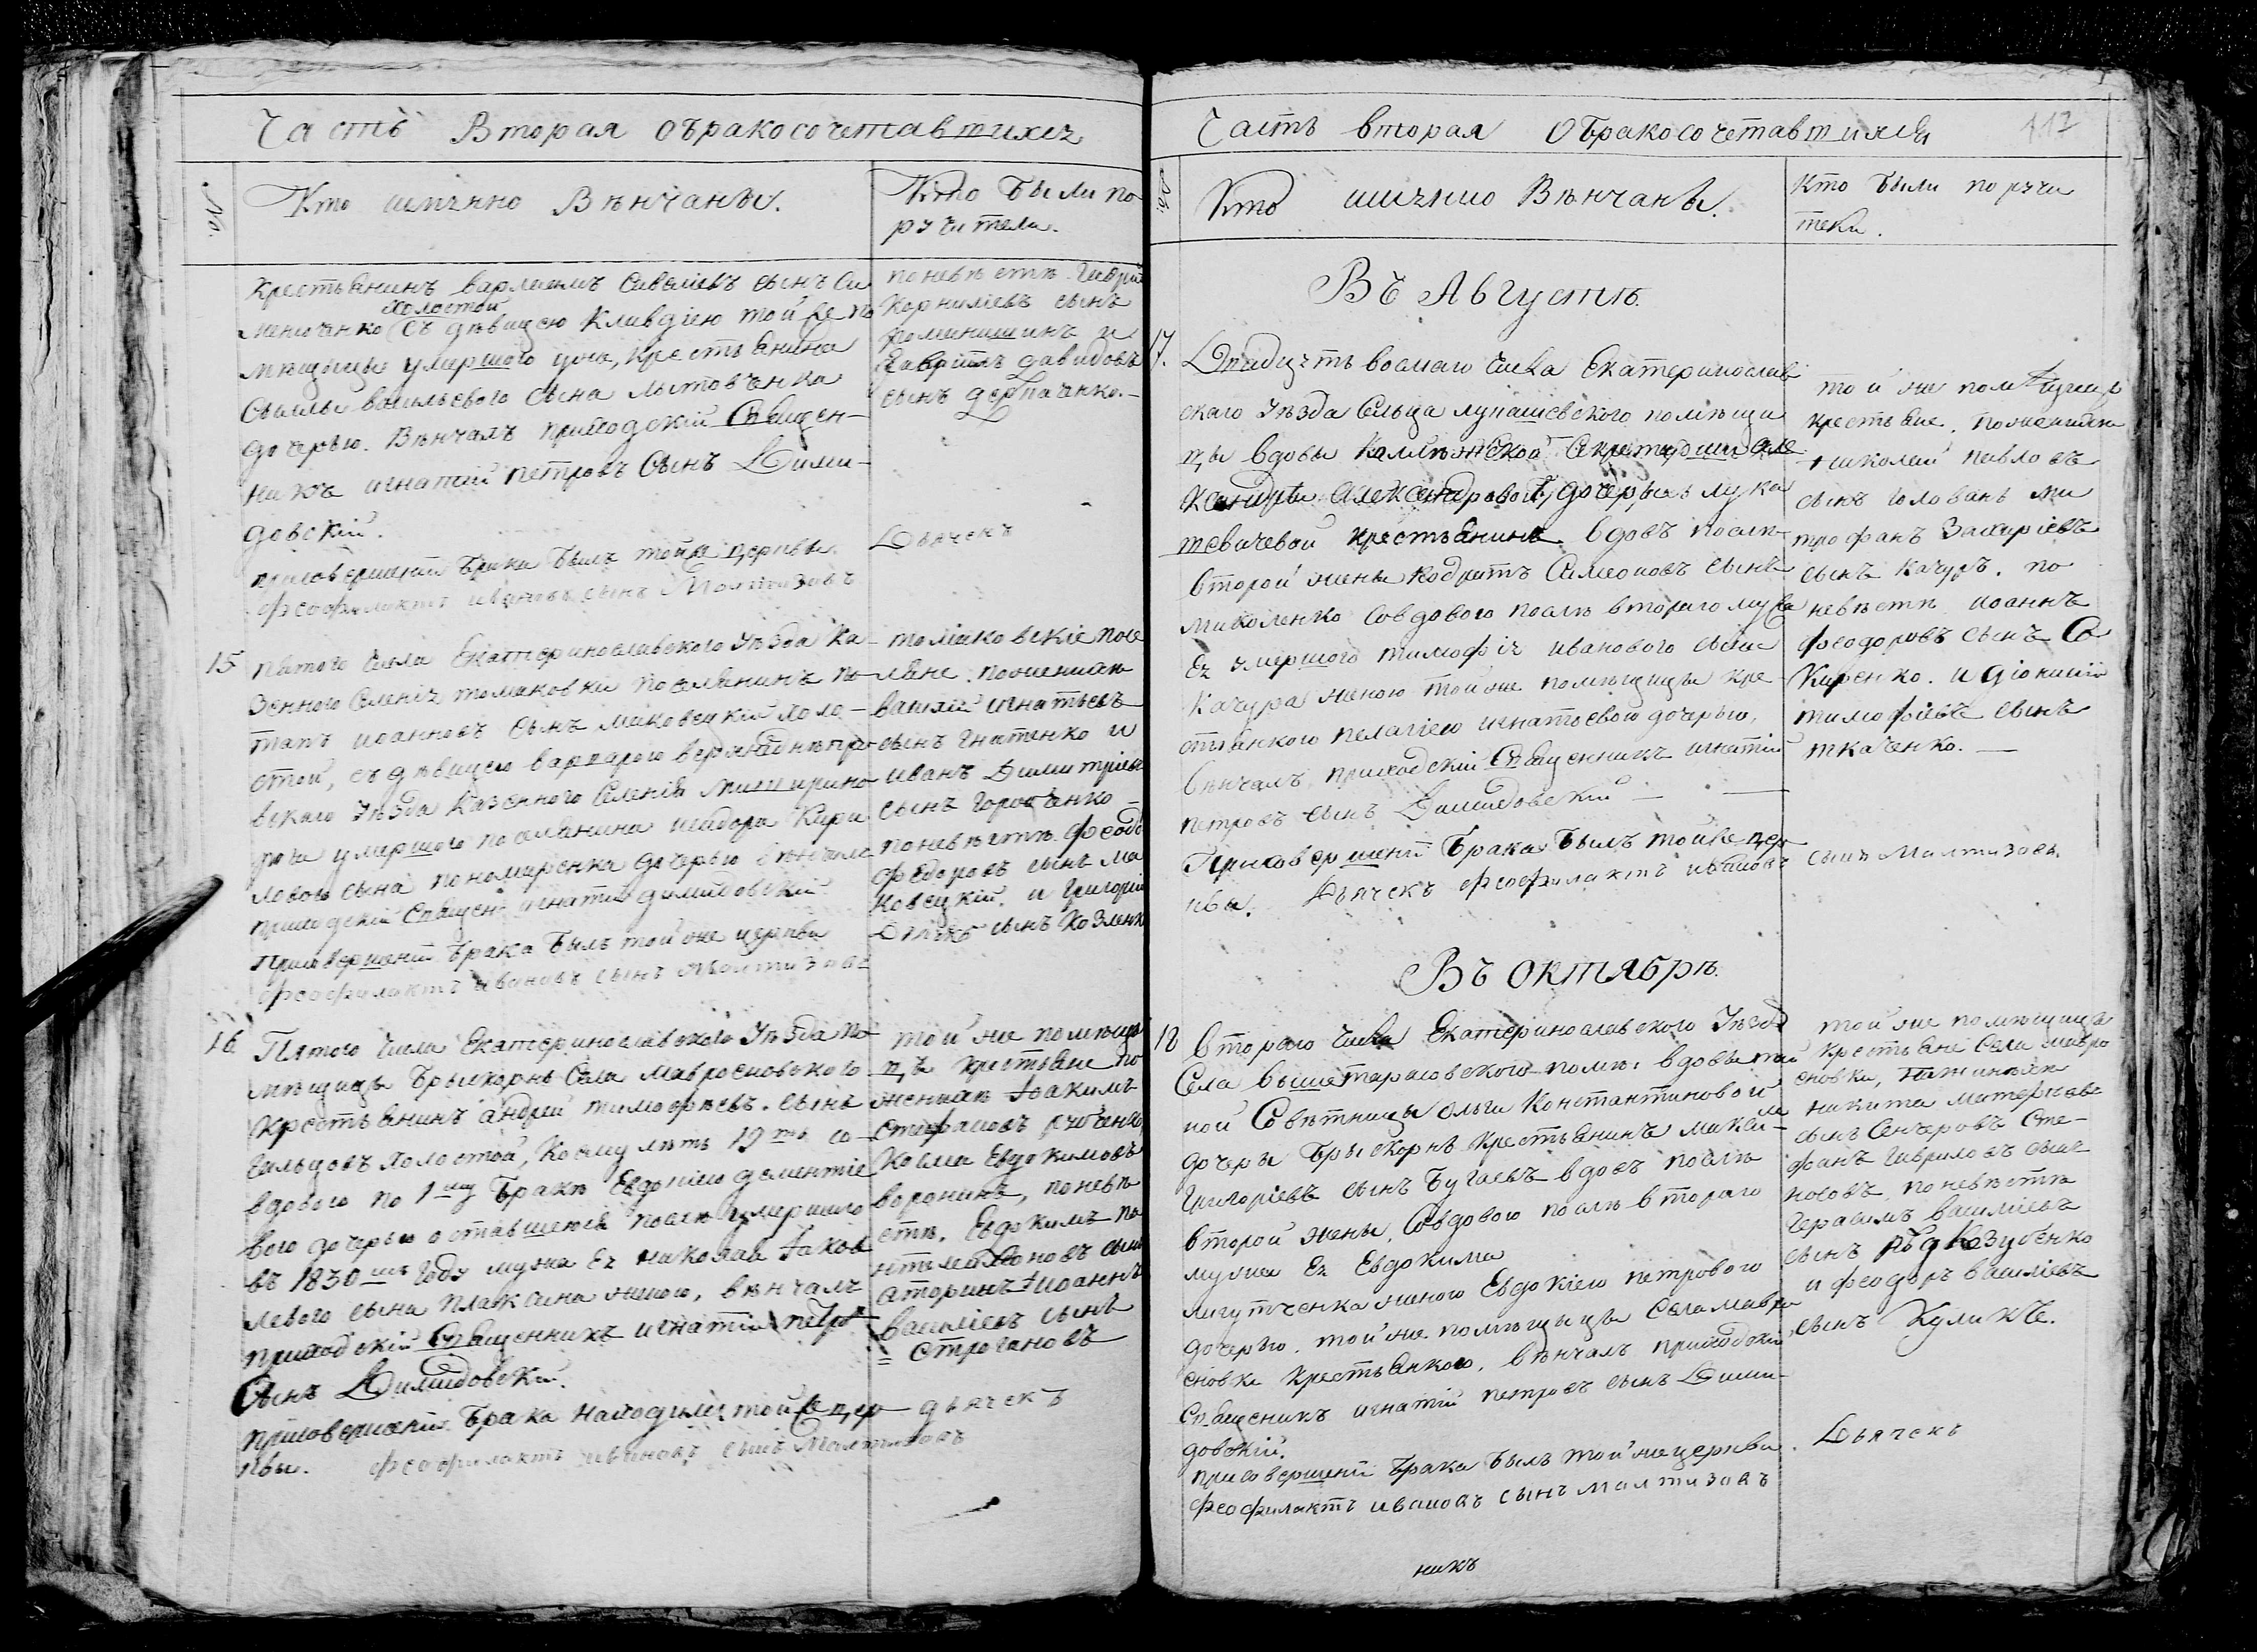 Часть Вторая обракосочетавшихся
№.
Кто имянно Вѣнчаны.
Кто были по
ручители.
Крестьянинъ варлаамъ Савелиевъ сынъ Си
холостой
меноченко съ дѣвицею Клавдіею той же по
мѣщицы умаршого крестьянина
васильевого сына литовченка
дочерью. Вѣнчалъ приходскій Священ-
никъ игнатій петровъ Сынъ Дими-
довскій.
присовершеніи брака былъ тойже церкви
Феофилактъ ивановъ сынъ Малтизовъ
поневѣстѣ
Корниліевъ сынъ
и
Гавриїлъ давидовъ
сынъ дерпаченко.-
Дьячекъ
15 пятого числа Екатеринославского Уѣзда ка-
зенного Селенія томаковки поселянинъ по-
тапъ иоанновъ сынъ маковецкій холо-
стой, съ дѣвицею варварою верхнѣднѣпро-
вского Уѣзда Казенного Селенія мишурино
рога умаршого поселянина исидора Кири
лового сына пономаренка дочерью вѣнчалъ
приходскій Священ игнатій димидовскій
присовершеніи брака былъ той же церкви
Феофилактъ ивановъ сынъ Малтизовъ
томаковскіе посе
ляне. поженихѣ
василій игнатьевъ
сынъ гнатенко и
иванъ Димитріевъ
сынъ горобченко -
поневѣстѣ феодо
федоровъ сынъ ма
ковецкій. и григорій
сынъ Козленко
16 Пятого числа Екатеринославского Уѣзда по-
мѣщицы Брискорнъ Села мавросновского
Крестьянинъ андрей тимофѣевъ. сынъ
холостой, коему лѣтъ 19ть со
вдового по 1му бракѣ Евдокіею дементіе
вого дочерью оставшеюся послѣ умаршого
въ 1830мъ годѣ мужа Ея николая Яков
левого сына плаксина женою, вѣнчалъ
приходскій Священникъ игнатій петровъ
Сынъ Димидовскій.
присовершеніи брака находился тойже цер
кви. Феофилактъ ивановъ сынъ Малтизовъ
той же помѣщи
цы крестьяне по
женихѣ Іоакимъ
Стефановъ рябченко
Косма Евдокимовъ
воронинъ, поневѣ
стѣ. Евдокимъ па
нтелеймоновъ сынъ
Іоаннъ
василіевъ сынъ
Строгановъ
дьячекъ
Часть вторая Обракосочетавшихся 117
№
Кто имянно Вѣнчаны.
Кто были поручи
тели.
Въ Августѣ.
17. Двадцать восмаго числа Екатеринослав
скаго Уѣзда Сельца лукашевского помѣщи
цы вдовы Секретарши але
ксандры Александровой дочеры лука
шевичевой крестьянинъ вдовъ послѣ
второй жены Кодратъ Симеоновъ сынъ
миколенко совдового послѣ второго мужа
Ея умершого тимофія иванового сына
Качура женою той же помѣщицы кре
стьянкою пелагіею игнатьевою дочерью,
Вѣнчалъ приходскій Священникъ игнатій
петровъ сынъ Димидовскій
Присовершеніи Брака былъ тойже цер
кви. Дьячекъ Феофилактъ ивановъ сынъ Малтизовъ.
той же помѣщицы
крестьяне. поженихѣ
николай павловъ
сынъ голованъ ми
трофанъ Захаріевъ
сынъ Качуръ. по
невѣстѣ иоаннъ
феодоровъ сынъ Со
Киренко. и діонисій
тимофіевъ сынъ
ткаченко.
Въ Октябрѣ.
18 второго числа Екатеринославского Уѣзда
Села вышетарасовского помѣ: вдовы тай
ной Совѣтницы ольги Константиновой
дочеры Брискорнъ крестьянинъ
григоріевъ сынъ бугаевъ вдовъ послѣ
второй жены, Совдовою послѣ втораго
мужа Ея Евдокима
лигутченка женою Евдокіею петрового
дочерью. той же помѣщицы Села мавро
сновки крестьянкою. вѣнчалъ приходскій
Священикъ игнатій петровъ сынъ Дими-
довскій.
присовершеніи брака былъ той же церкви. Дьячекъ
Феофилактъ ивановъ сынъ малтизовъ
той же помѣщицы
крестьяне Села мавро
сновки, поженихѣ
никита
сынъ Сте-
фанъ гавриловъ сынъ
носовъ, поневѣстѣ
герасимъ василіевъ
сынъ
и феодоръ василіевъ
сынъ Куликъ.
никъ